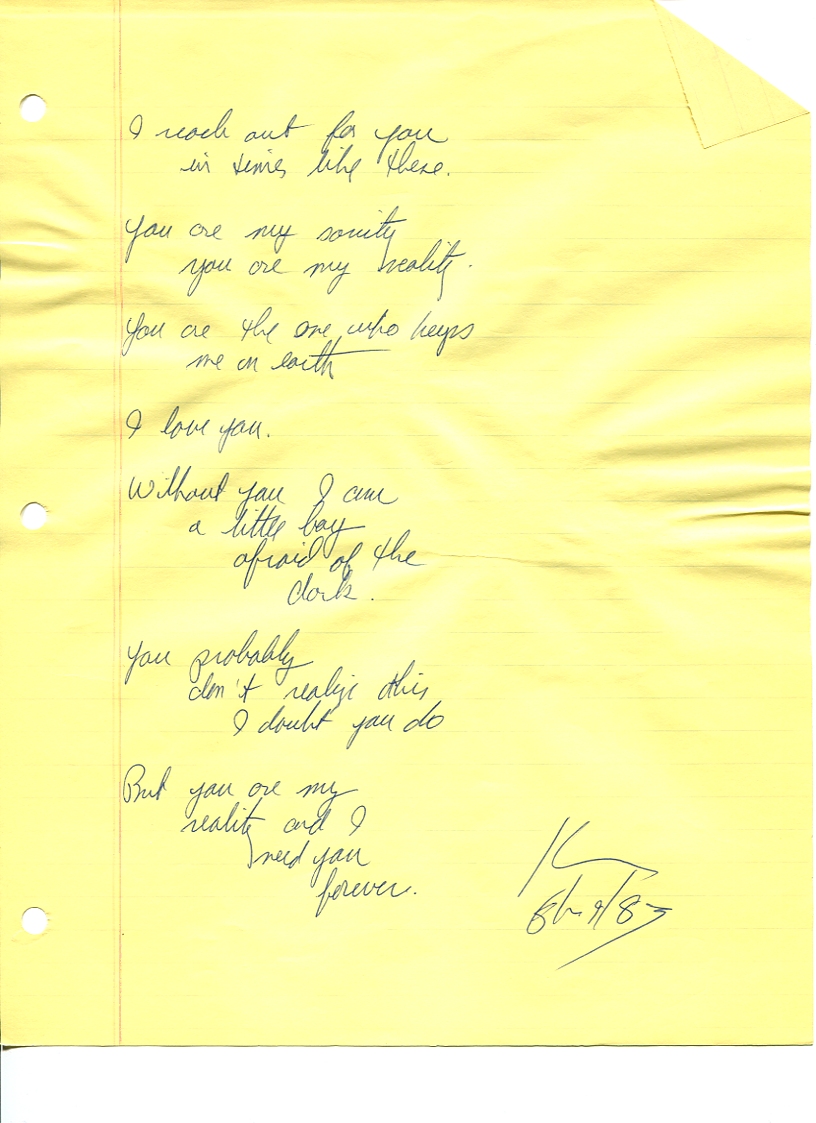 I reach out for you
in times like these.
You are my sanity
you are my reality.
You are the one who keeps
me on earth
I love you.
Without you I am
a little boy
afraid of the
dark.
You probably
don't realize this
I doubt you do
But you are my
reality and I
need you
forever.